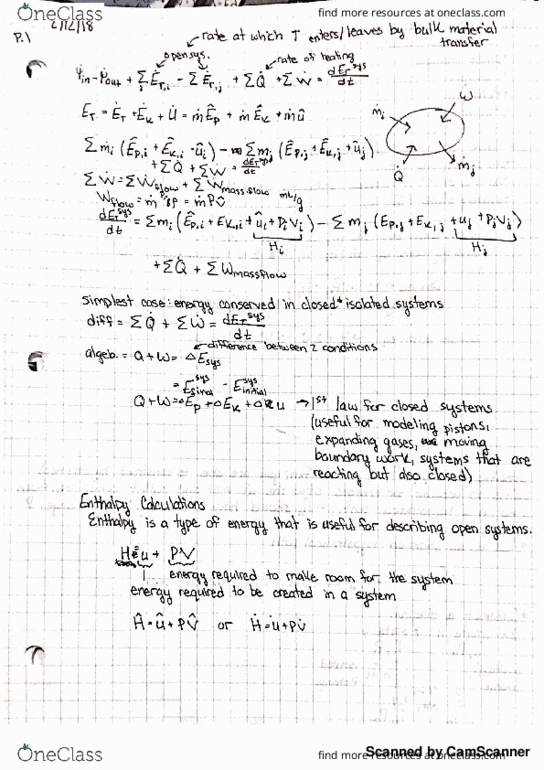 OneClass
find more resources at oneclass.com
P.1
2/12/18
rate at which T enters/leaves by bulk material
transfer
open sys.
rate of heating
Ψ̇in - Ψ̇out + Σ Ė_T,i - Σ Ė_T,j + ΣQ̇ + ΣẆ = dE_T^sys/dt
Ė_T = Ė_P + Ė_K + U̇ = ṁÊp + ṁÊ_K + ṁû
ṁi
Ẇ
Q̇
ṁj
Σ ṁi (Êp,i + Ê_K,i + ûi) - Σ ṁj (Êp,j + Ê_K,j + ûj)
+ ΣQ̇ + ΣẆ = dE_T^sys/dt
ΣẆ = ΣẆflow + ΣẆmassflow
Ẇflow = ṁPV̂
dE_T^sys/dt = Σ ṁi (Êp,i + E_K,i + ûi + PiVi) - Σ ṁj (Ep,j + E_K,j + uj + PjVj)
Hi
Hj
+ ΣQ̇ + ΣWmassflow
simplest case: energy conserved in closed + isolated systems
diff = ΣQ̇ + ΣẆ = dE_T^sys/dt
difference between 2 conditions
algeb. = Q + W = ΔEsys
= E^sys final - E^sys initial
Q + W = ΔEp + ΔE_K + Δu → 1st law for closed systems
(useful for modeling pistons,
expanding gases, moving
boundary work, systems that are
reacting but also closed)
Enthalpy Calculations
Enthalpy is a type of energy that is useful for describing open systems.
H = u + PV
energy required to make room for the system
energy required to be created in a system
Ĥ = û + PV̂ or Ḣ = u̇ + PV̇
OneClass
find more resources at oneclass.com
Scanned by CamScanner